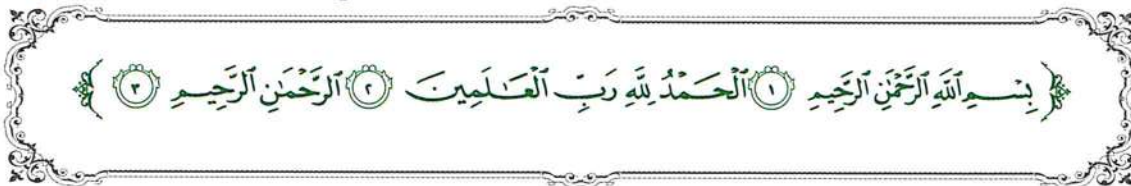 ﴿ بِسْمِ ٱللَّهِ ٱلرَّحْمَٰنِ ٱلرَّحِيمِ ١ ٱلْحَمْدُ لِلَّهِ رَبِّ ٱلْعَٰلَمِينَ ٢ ٱلرَّحْمَٰنِ ٱلرَّحِيمِ ٣ ﴾